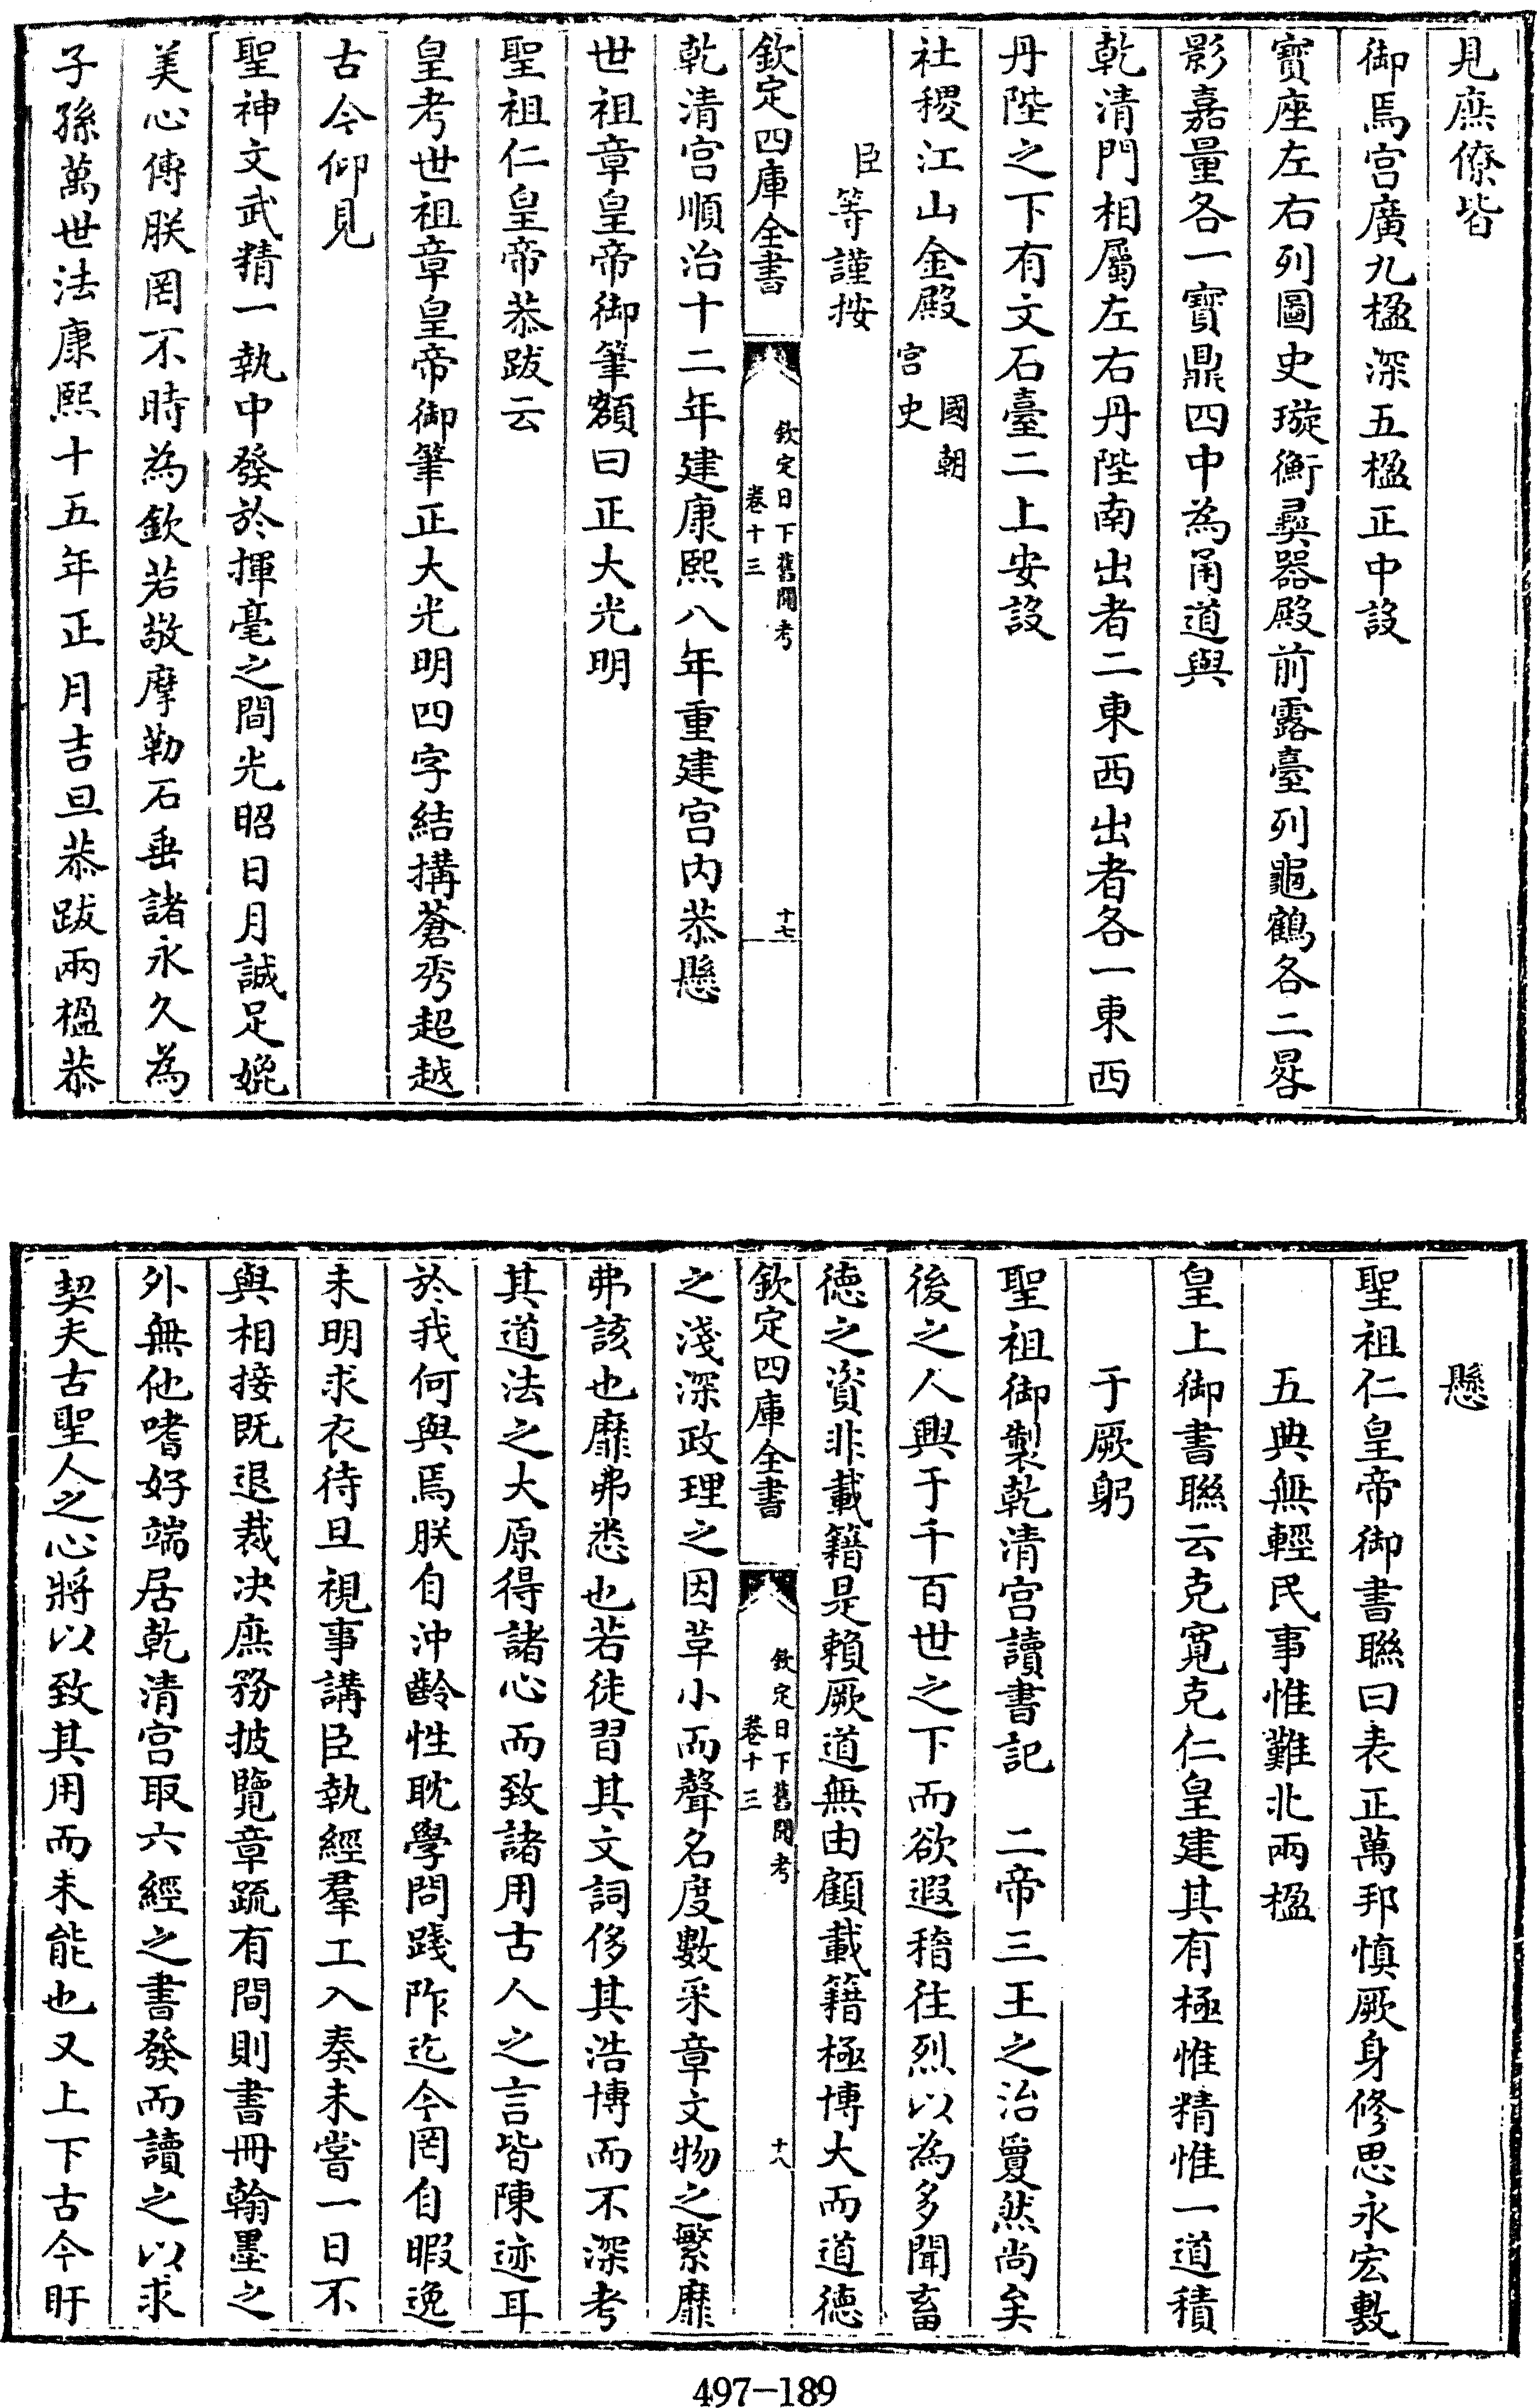 見庶僚皆
御焉宫廣九楹深五楹正中設
寳座左右列圖史璇衡彛器殿前露臺列龜鶴各二晷
影嘉量各一寳鼎四中為甬道與
乾清門相屬左右丹陛南出者二東西出者各一東西
丹陛之下有文石臺二上安設
社稷江山金殿國朝宫史
臣等謹按
欽定四庫全書
欽定日下舊聞考
卷十三
十七
乾清宫順治十二年建康熙八年重建宫内恭懸
世祖章皇帝御筆額曰正大光明
聖祖仁皇帝恭跋云
皇考世祖章皇帝御筆正大光明四字結搆蒼秀超越
古今仰見
聖神文武精一執中發於揮毫之間光昭日月誠足媲
美心傳朕罔不時為欽若敬摩勒石垂諸永久為
子孫萬世法康熙十五年正月吉旦恭跋兩楹恭
懸
聖祖仁皇帝御書聯曰表正萬邦慎厥身修思永宏敷
五典無輕民事惟難北兩楹
皇上御書聯云克寛克仁皇建其有極惟精惟一道積
于厥躬
聖祖御製乾清宫讀書記　二帝三王之治敻然尚矣
後之人興于千百世之下而欲遐稽往烈以為多聞畜
徳之資非載籍是賴厥道無由顧載籍極博大而道徳
欽定四庫全書
欽定日下舊聞考
卷十三
十八
之淺深政理之因革小而聲名度數采章文物之繁靡
弗該也靡弗悉也若徒習其文詞侈其浩博而不深考
其道法之大原得諸心而致諸用古人之言皆陳迹耳
於我何與焉朕自沖齡性耽學問踐阼迄今罔自暇逸
未明求衣待旦視事講臣執經羣工入奏未嘗一日不
與相接既退裁决庶務披覽章疏有間則書冊翰墨之
外無他嗜好端居乾清宫取六經之書發而讀之以求
契夫古聖人之心將以致其用而未能也又上下古今盱
497-189